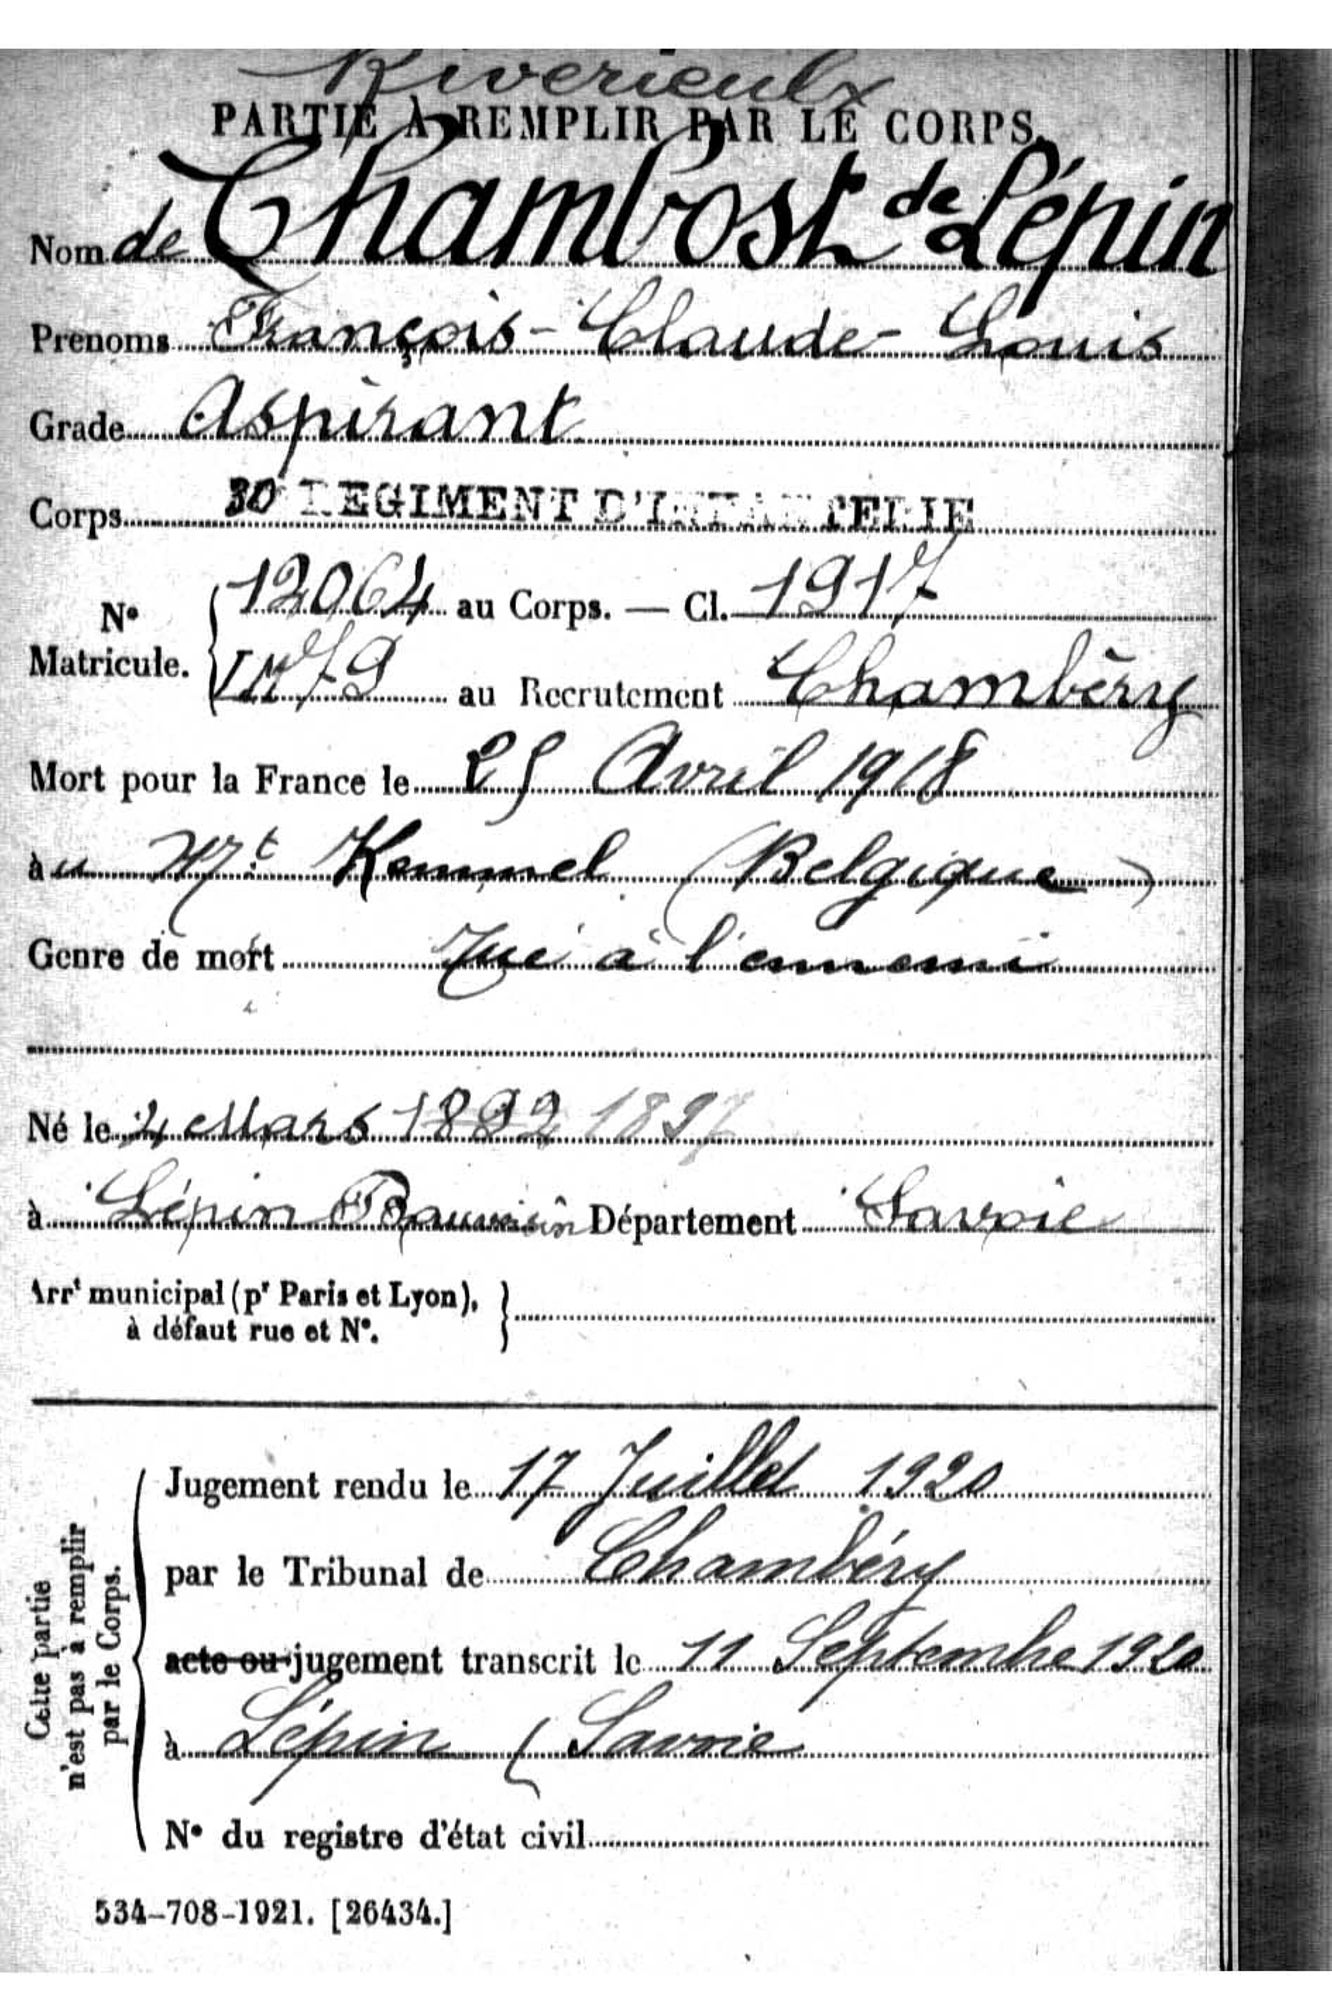 Riverieulx
PARTIE À REMPLIR PAR LE CORPS.
Nom de Chambost de Lépin
Prenoms François-Claude-Louis
Grade Aspirant
Corps 30e REGIMENT D'INFANTERIE
No Matricule. { 12064 au Corps. — Cl. 1917
au Recrutement Chambéry
Mort pour la France le 25 Avril 1918
à u Mt. Kemmel (Belgique)
Genre de mort Tué à l'ennemi
Né le 4 Mars 1892 1897
à Lépin Département Savoie
Arrt municipal (pr Paris et Lyon), à défaut rue et No. }
Cette partie n'est pas à remplir par le Corps.
Jugement rendu le 17 Juillet 1920
par le Tribunal de Chambéry
acte ou jugement transcrit le 11 Septembre 1920
à Lépin (Savoie
No du registre d'état civil
534-708-1921. [26434.]